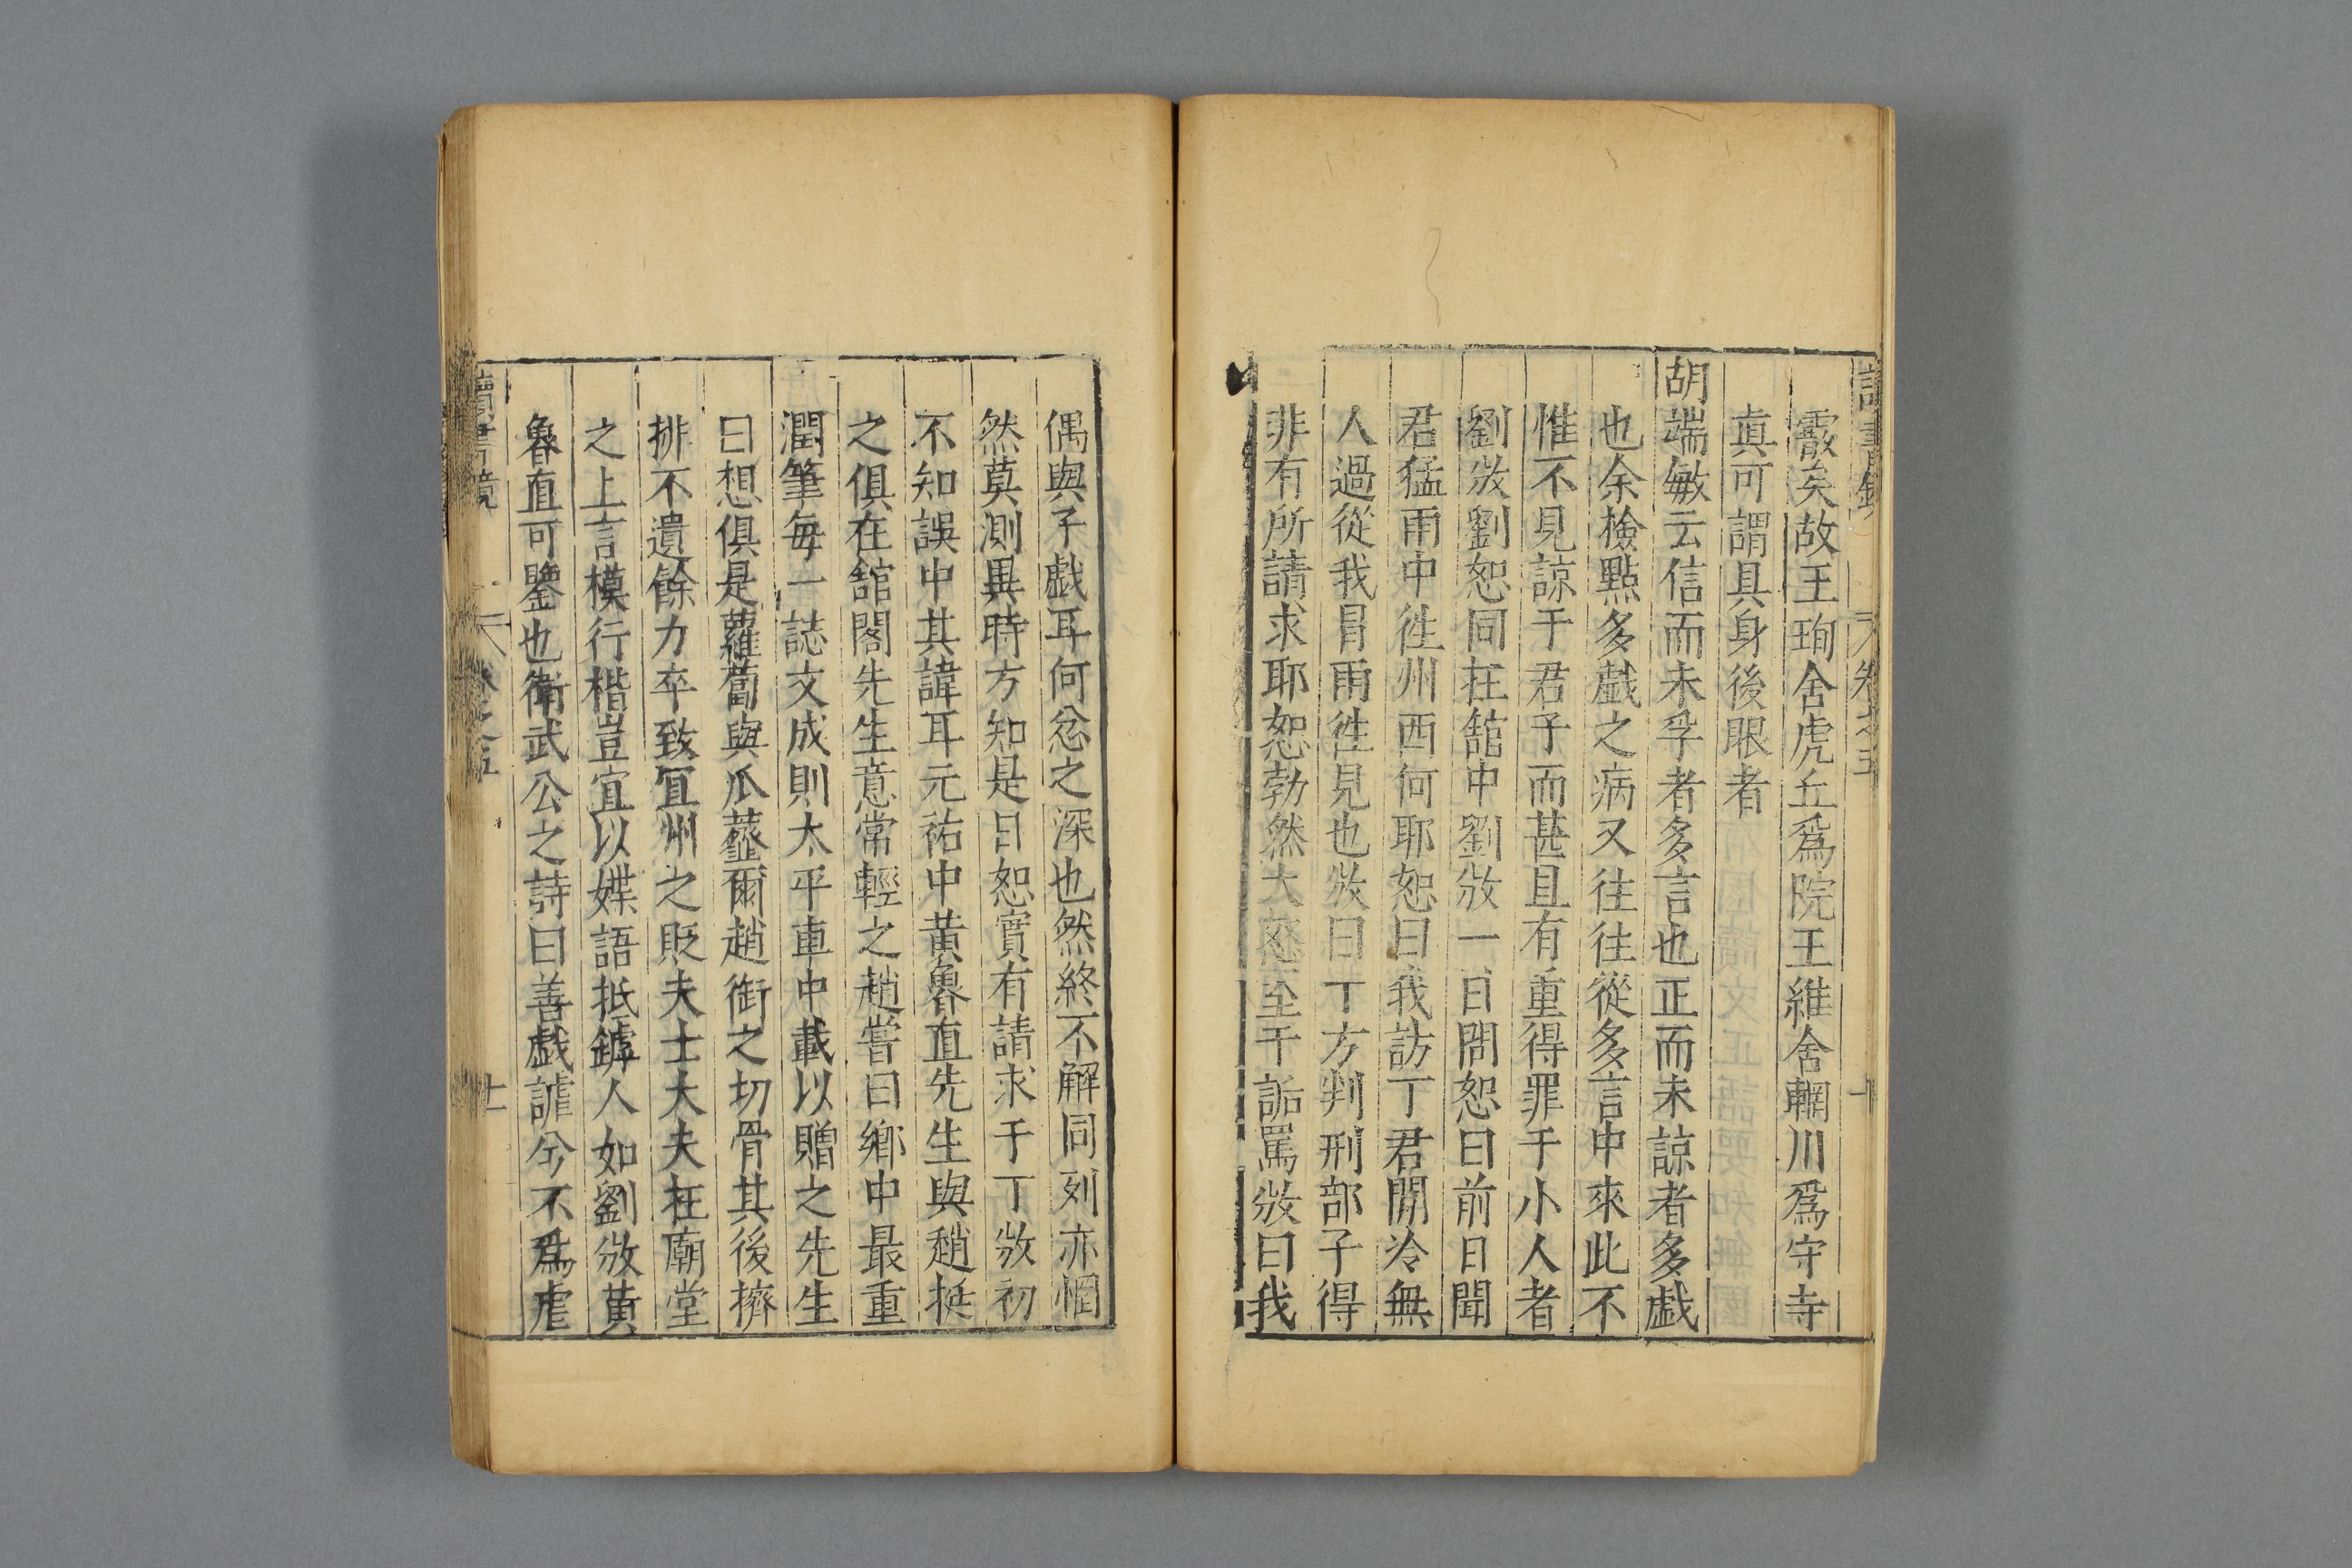 讀書鏡 卷之五 十
霰矣故王珣舍虎丘爲院王維舍輞川爲守寺
真可謂具身後眼者
胡端敏云信而未孚者多言也正而未諒者多戲
也余檢點多戲之病又往往從多言中來此不
惟不見諒于君子而甚且有重得罪于小人者
劉攽劉恕同在舘中劉攽一日問恕曰前日聞
君猛雨中徃州西何耶恕曰我訪丁君閒冷無
人過從我冒雨徃見也攽曰丁方判刑部子得
非有所請求耶恕勃然大怒至于詬罵攽曰我
偶與子戲耳何忿之深也然終不解同列亦惘
然莫測異時方知是日恕實有請求于丁攽初
不知誤中其諱耳元祐中黃魯直先生與趙挺
之俱在舘閣先生意常輕之趙嘗曰鄉中最重
潤筆每一誌文成則太平車中載以贈之先生
曰想俱是蘿蔔與瓜虀爾趙銜之切骨其後擠
排不遺餘力卒致宜州之貶夫士大夫在廟堂
之上言模行楷豈宜以媟語抵罅人如劉攽黃
魯直可鑒也衛武公之詩曰善戲謔兮不爲虐
讀書鏡 卷之五 十一